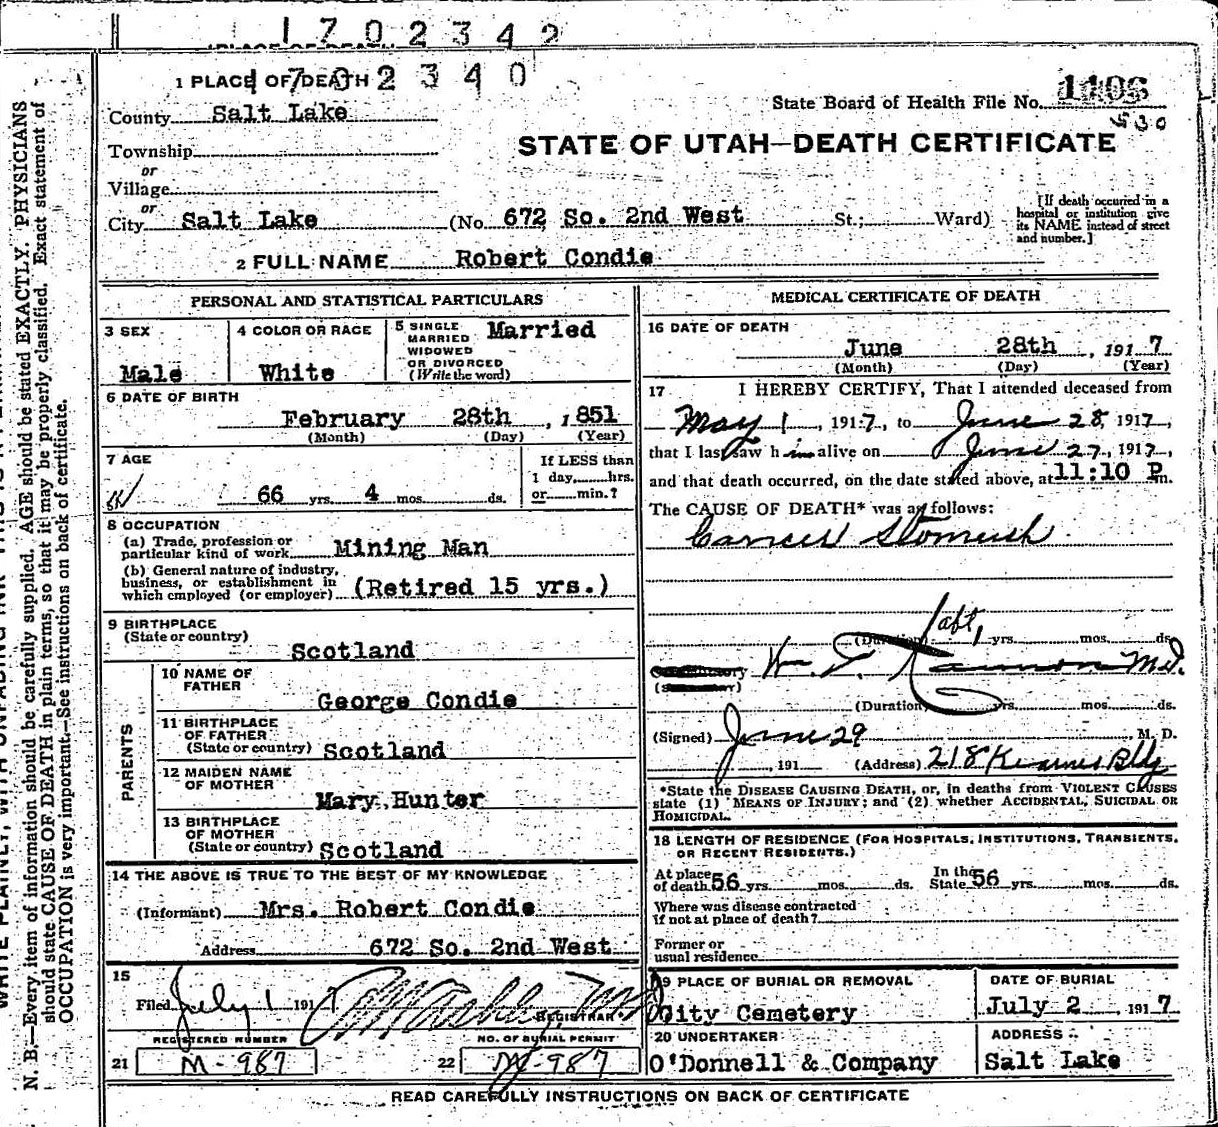 1702342
1 PLACE OF DEATH
1702340
County Salt Lake
State Board of Health File No. 1106
530
STATE OF UTAH—DEATH CERTIFICATE
Township
or
Village
or
City Salt Lake (No. 672 So. 2nd West St.; Ward)
[If death occurred in a
hospital or institution give
its NAME instead of street
and number.]
2 FULL NAME Robert Condie
PERSONAL AND STATISTICAL PARTICULARS
3 SEX
Male
4 COLOR OR RACE
White
5 SINGLE
MARRIED
WIDOWED
OR DIVORCED
(Write the word)
Married
6 DATE OF BIRTH
February 28th, 1851
(Month) (Day) (Year)
7 AGE
66 yrs. 4 mos. ds.
If LESS than
1 day, hrs.
or min.?
8 OCCUPATION
(a) Trade, profession or
particular kind of work Mining Man
(b) General nature of industry,
business, or establishment in
which employed (or employer) (Retired 15 yrs.)
9 BIRTHPLACE
(State or country)
Scotland
PARENTS
10 NAME OF
FATHER
George Condie
11 BIRTHPLACE
OF FATHER
(State or country) Scotland
12 MAIDEN NAME
OF MOTHER
Mary Hunter
13 BIRTHPLACE
OF MOTHER
(State or country) Scotland
14 THE ABOVE IS TRUE TO THE BEST OF MY KNOWLEDGE
(Informant) Mrs. Robert Condie
Address 672 So. 2nd West
15
Filed July 1 1917
REGISTRAR
REGISTERED NUMBER
NO. OF BURIAL PERMIT
21 M-987
22 M-987
MEDICAL CERTIFICATE OF DEATH
16 DATE OF DEATH
June 28th, 1917
(Month) (Day) (Year)
17 I HEREBY CERTIFY, That I attended deceased from
May 1, 1917, to June 28, 1917,
that I last saw him alive on June 27, 1917,
and that death occurred, on the date stated above, at 11:10 P m.
The CAUSE OF DEATH* was as follows:
Cancer Stomach
(Duration) yrs. mos. ds.
M.D.
(Duration) yrs. mos. ds.
(Signed) June 29, M. D.
, 191 (Address) 218 Kearns Bldg
*State the DISEASE CAUSING DEATH, or, in deaths from VIOLENT CAUSES
state (1) MEANS OF INJURY; and (2) whether ACCIDENTAL, SUICIDAL OR
HOMICIDAL.
18 LENGTH OF RESIDENCE (FOR HOSPITALS, INSTITUTIONS, TRANSIENTS,
OR RECENT RESIDENTS.)
At place
of death 56 yrs. mos. ds.
In the
State 56 yrs. mos. ds.
Where was disease contracted
if not at place of death?
Former or
usual residence
19 PLACE OF BURIAL OR REMOVAL
City Cemetery
DATE OF BURIAL
July 2 1917
20 UNDERTAKER
O'Donnell & Company
ADDRESS
Salt Lake
READ CAREFULLY INSTRUCTIONS ON BACK OF CERTIFICATE
N. B.—Every item of information should be carefully supplied. AGE should be stated EXACTLY. PHYSICIANS
should state CAUSE OF DEATH in plain terms, so that it may be properly classified. Exact statement of
OCCUPATION is very important.—See instructions on back of certificate.